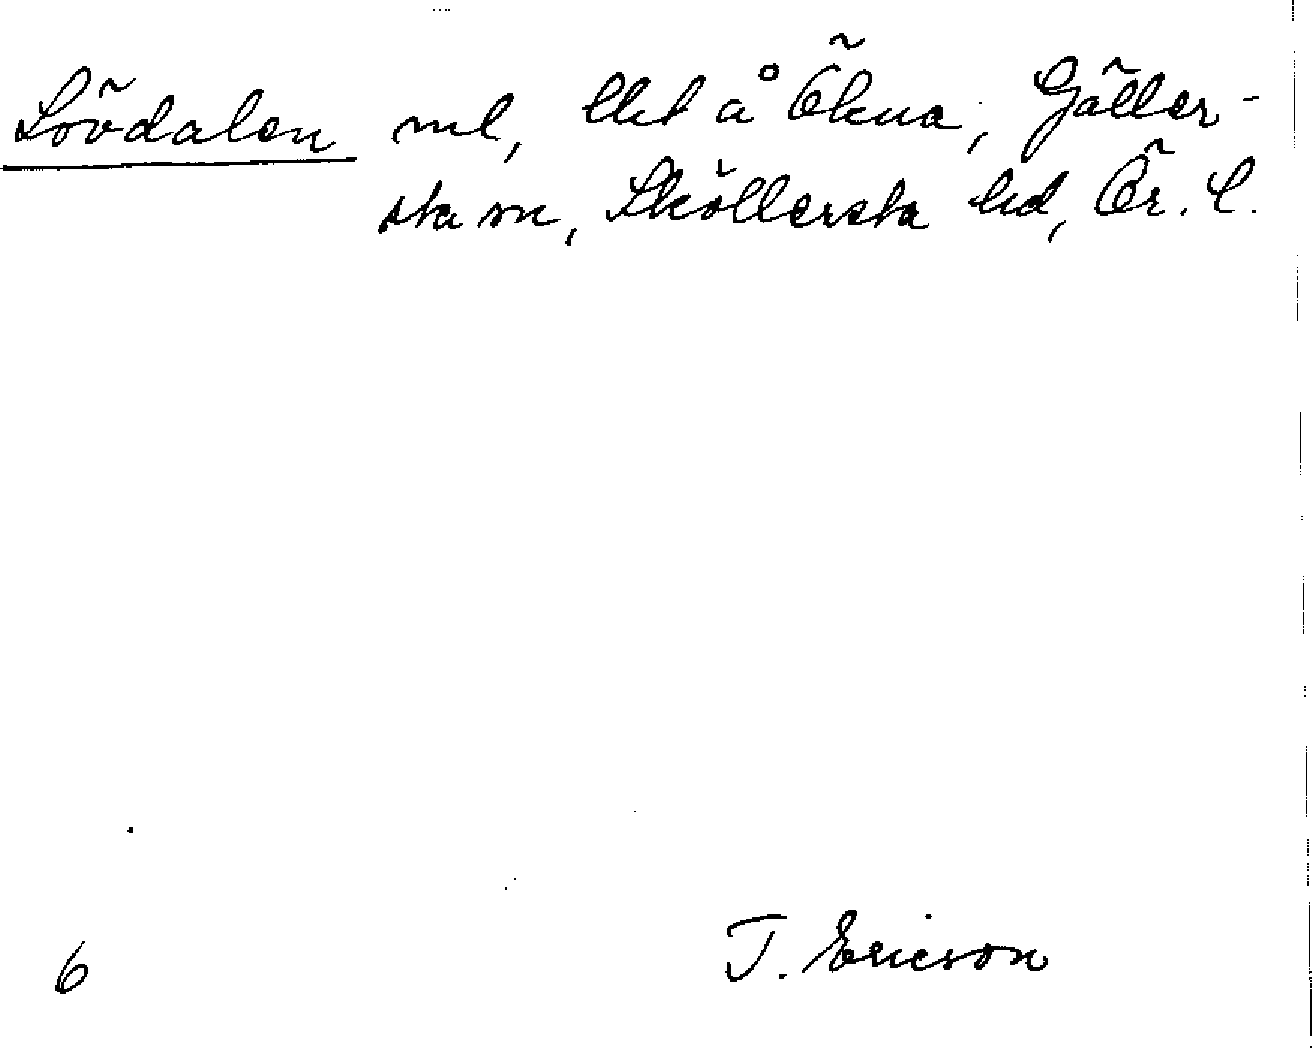 Lövdalen ml, lht å Ökna, Gäller-
sta sn, Sköllersta hd, Ör. l.
6
T. Ericson